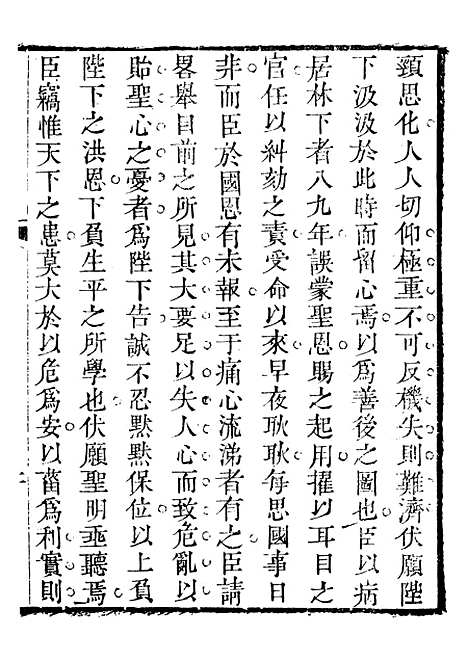 頸思化人人切仰極重不可反機失則難濟伏願陛
下汲汲於此時而留心焉以爲善後之圖也臣以病
居林下者八九年誤蒙聖恩賜之起用擢以耳目之
官任以糾劾之責受命以來早夜耿耿每思國事日
非而臣於國恩有未報至于痛心流涕者有之臣請
畧舉目前之所見其大要足以失人心而致危亂以
貽聖心之憂者爲陛下告誠不忍默默保位以上負
陛下之洪恩下負生平之所學也伏願聖明亟聽焉
臣竊惟天下之患莫大於以危爲安以菑爲利實則